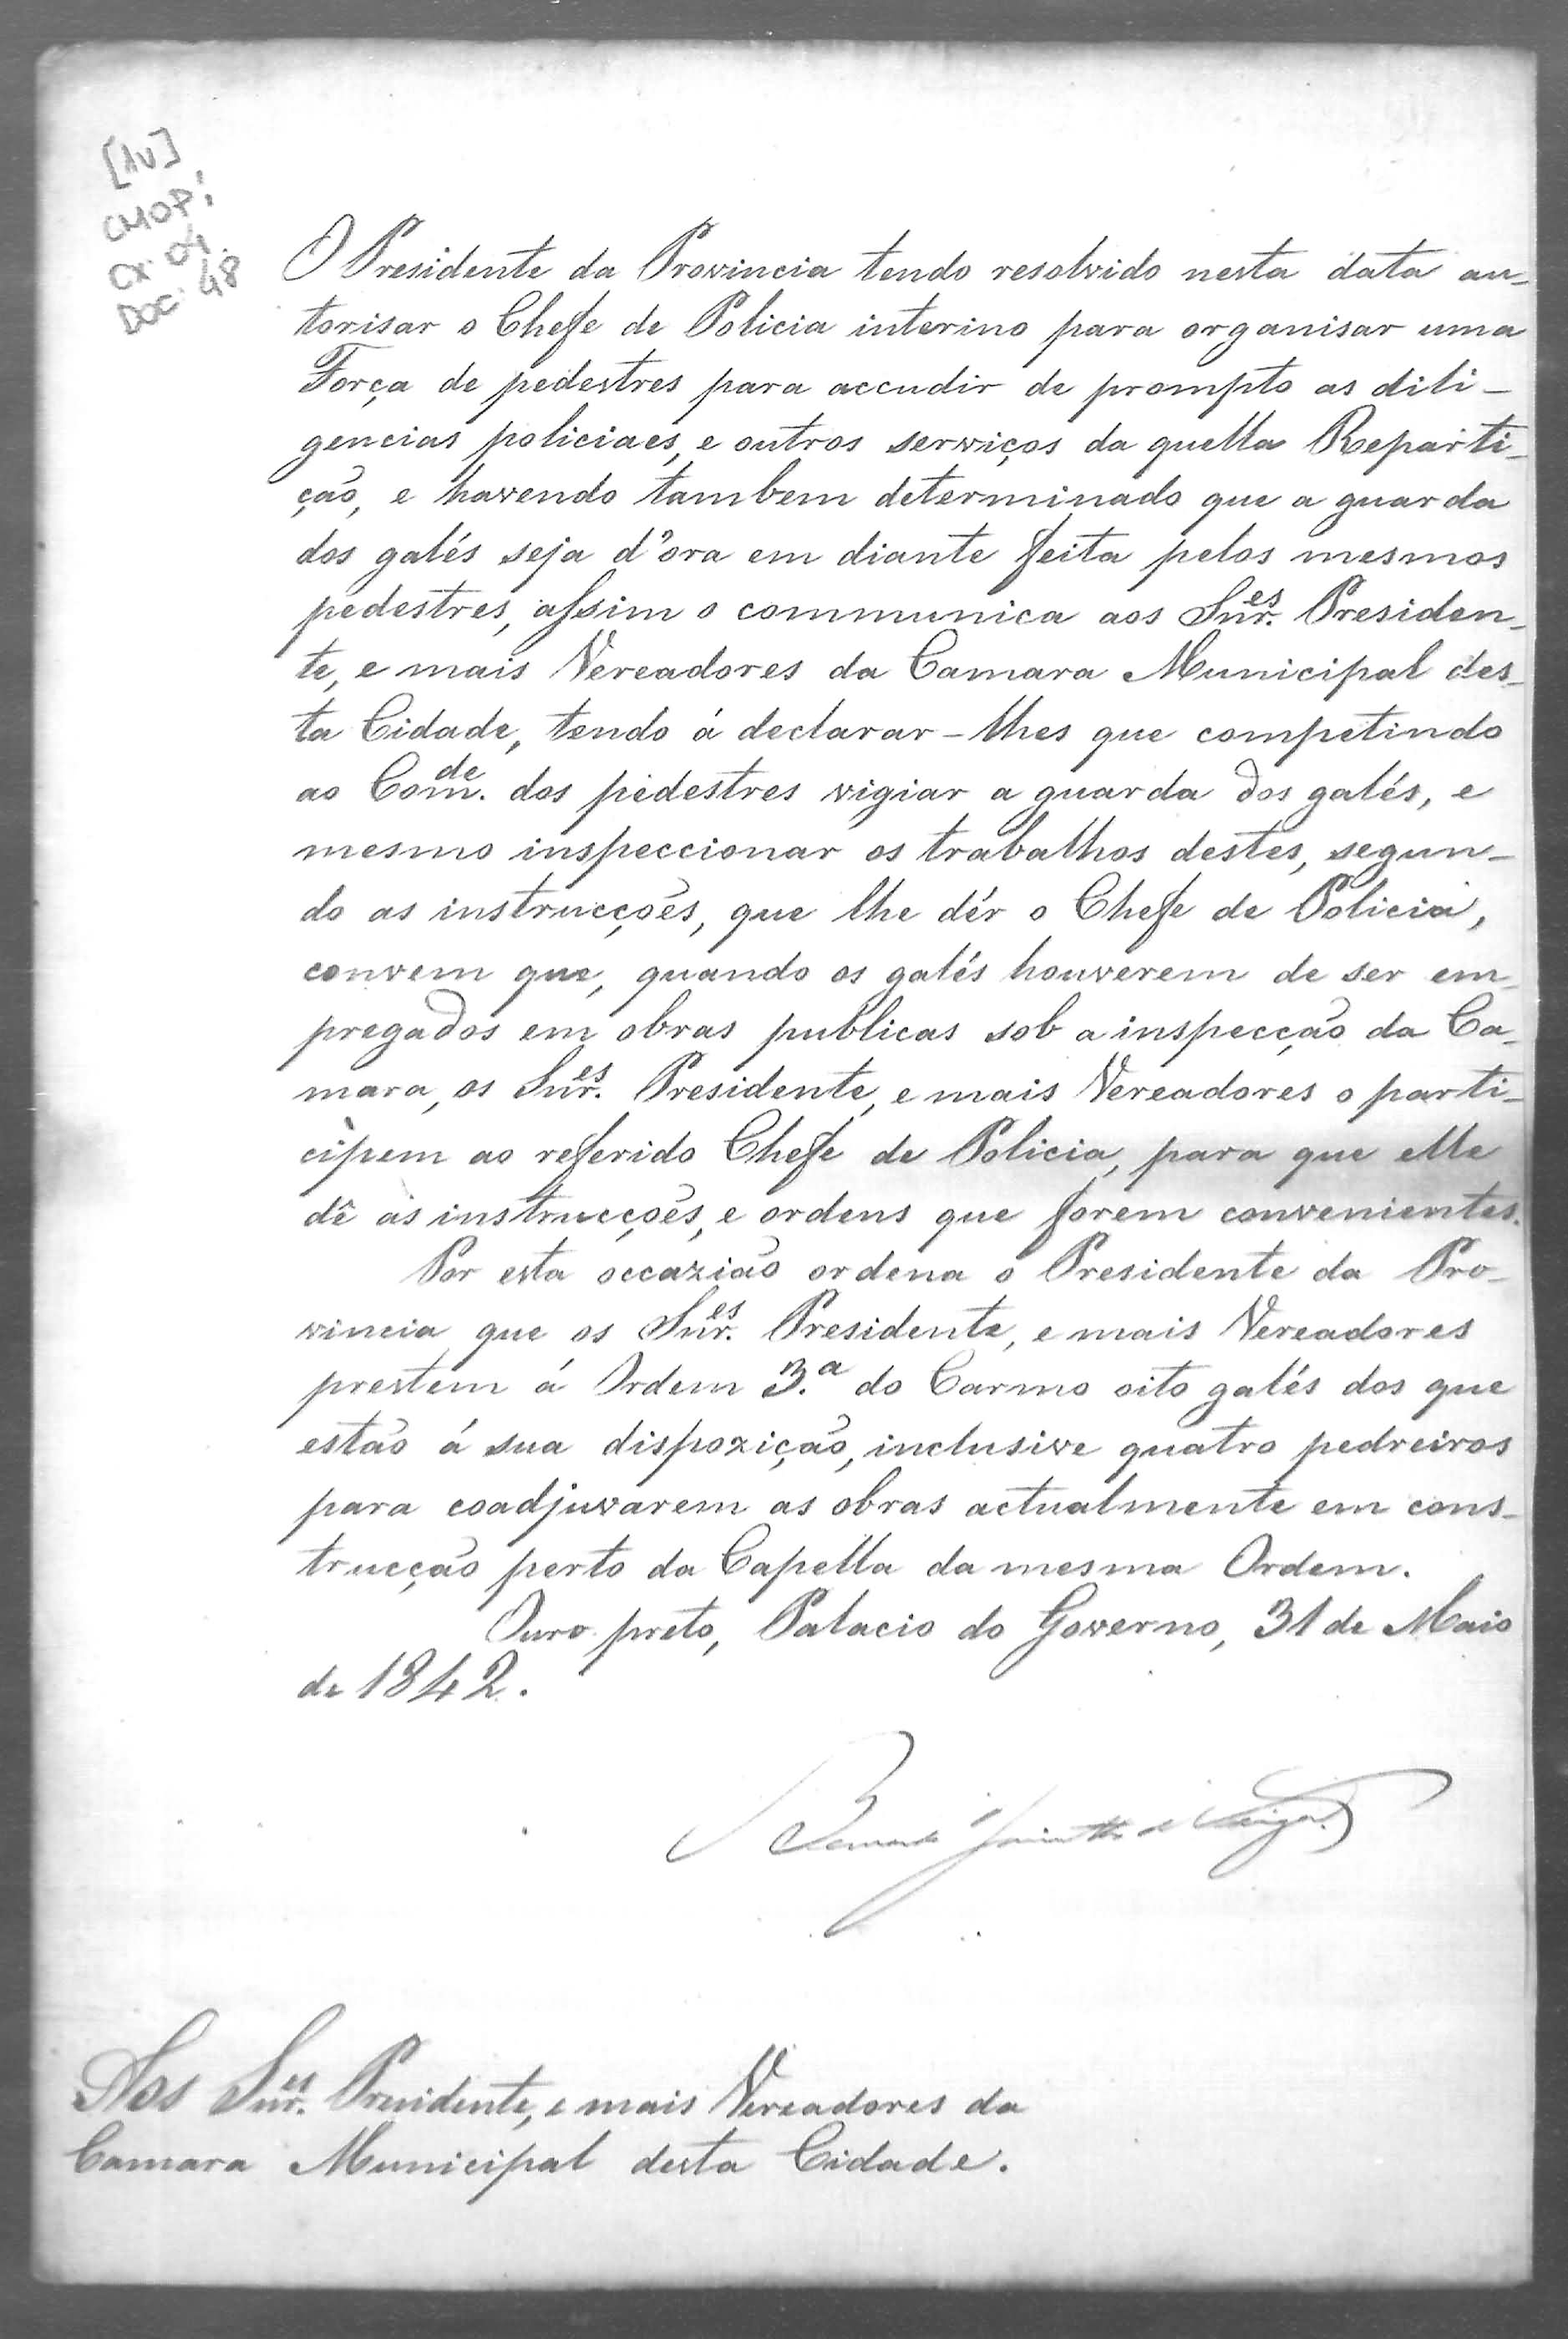 [AV]
CMOP:
CX. 04.
DOC: 48
O Presidente da Provincia tendo resolvido nesta data au-
torisar o Chefe de Policia interino para organisar uma
Força de pedestres para accudir de prompto as dili-
gencias policiaes, e outros serviços da quella Reparti-
ção, e havendo tambem determinado que a guarda
dos galés seja d'ora em diante feita pelos mesmos
pedestres, assim o communica aos Snr.es Presiden-
te, e mais Vereadores da Camara Municipal des-
ta Cidade, tendo á declarar-lhes que competindo
ao Com.de dos pedestres vigiar a guarda dos galés, e
mesmo inspeccionar os trabalhos destes, segun-
do as instrucções, que lhe dér o Chefe de Policia,
convem que, quando os galés houverem de ser em-
pregados em obras publicas sob a inspecção da Ca-
mara, os Snr.es Presidente, e mais Vereadores o parti-
cipem ao referido Chefe de Policia, para que elle
dê as instrucções, e ordens que forem convenientes.
Por esta occazião ordena o Presidente da Pro-
vincia que os Snr.es Presidente, e mais Vereadores
prestem á Ordem 3.a do Carmo oito galés dos que
estão á sua dispozição, inclusive quatro pedreiros
para coadjuvarem as obras actualmente em cons-
trucção perto da Capella da mesma Ordem.
Ouro preto, Palacio do Governo, 31 de Maio
de 1842.
Bernardo Jacintho da Veiga
Aos Snr.es Presidente, e mais Vereadores da
Camara Municipal desta Cidade.